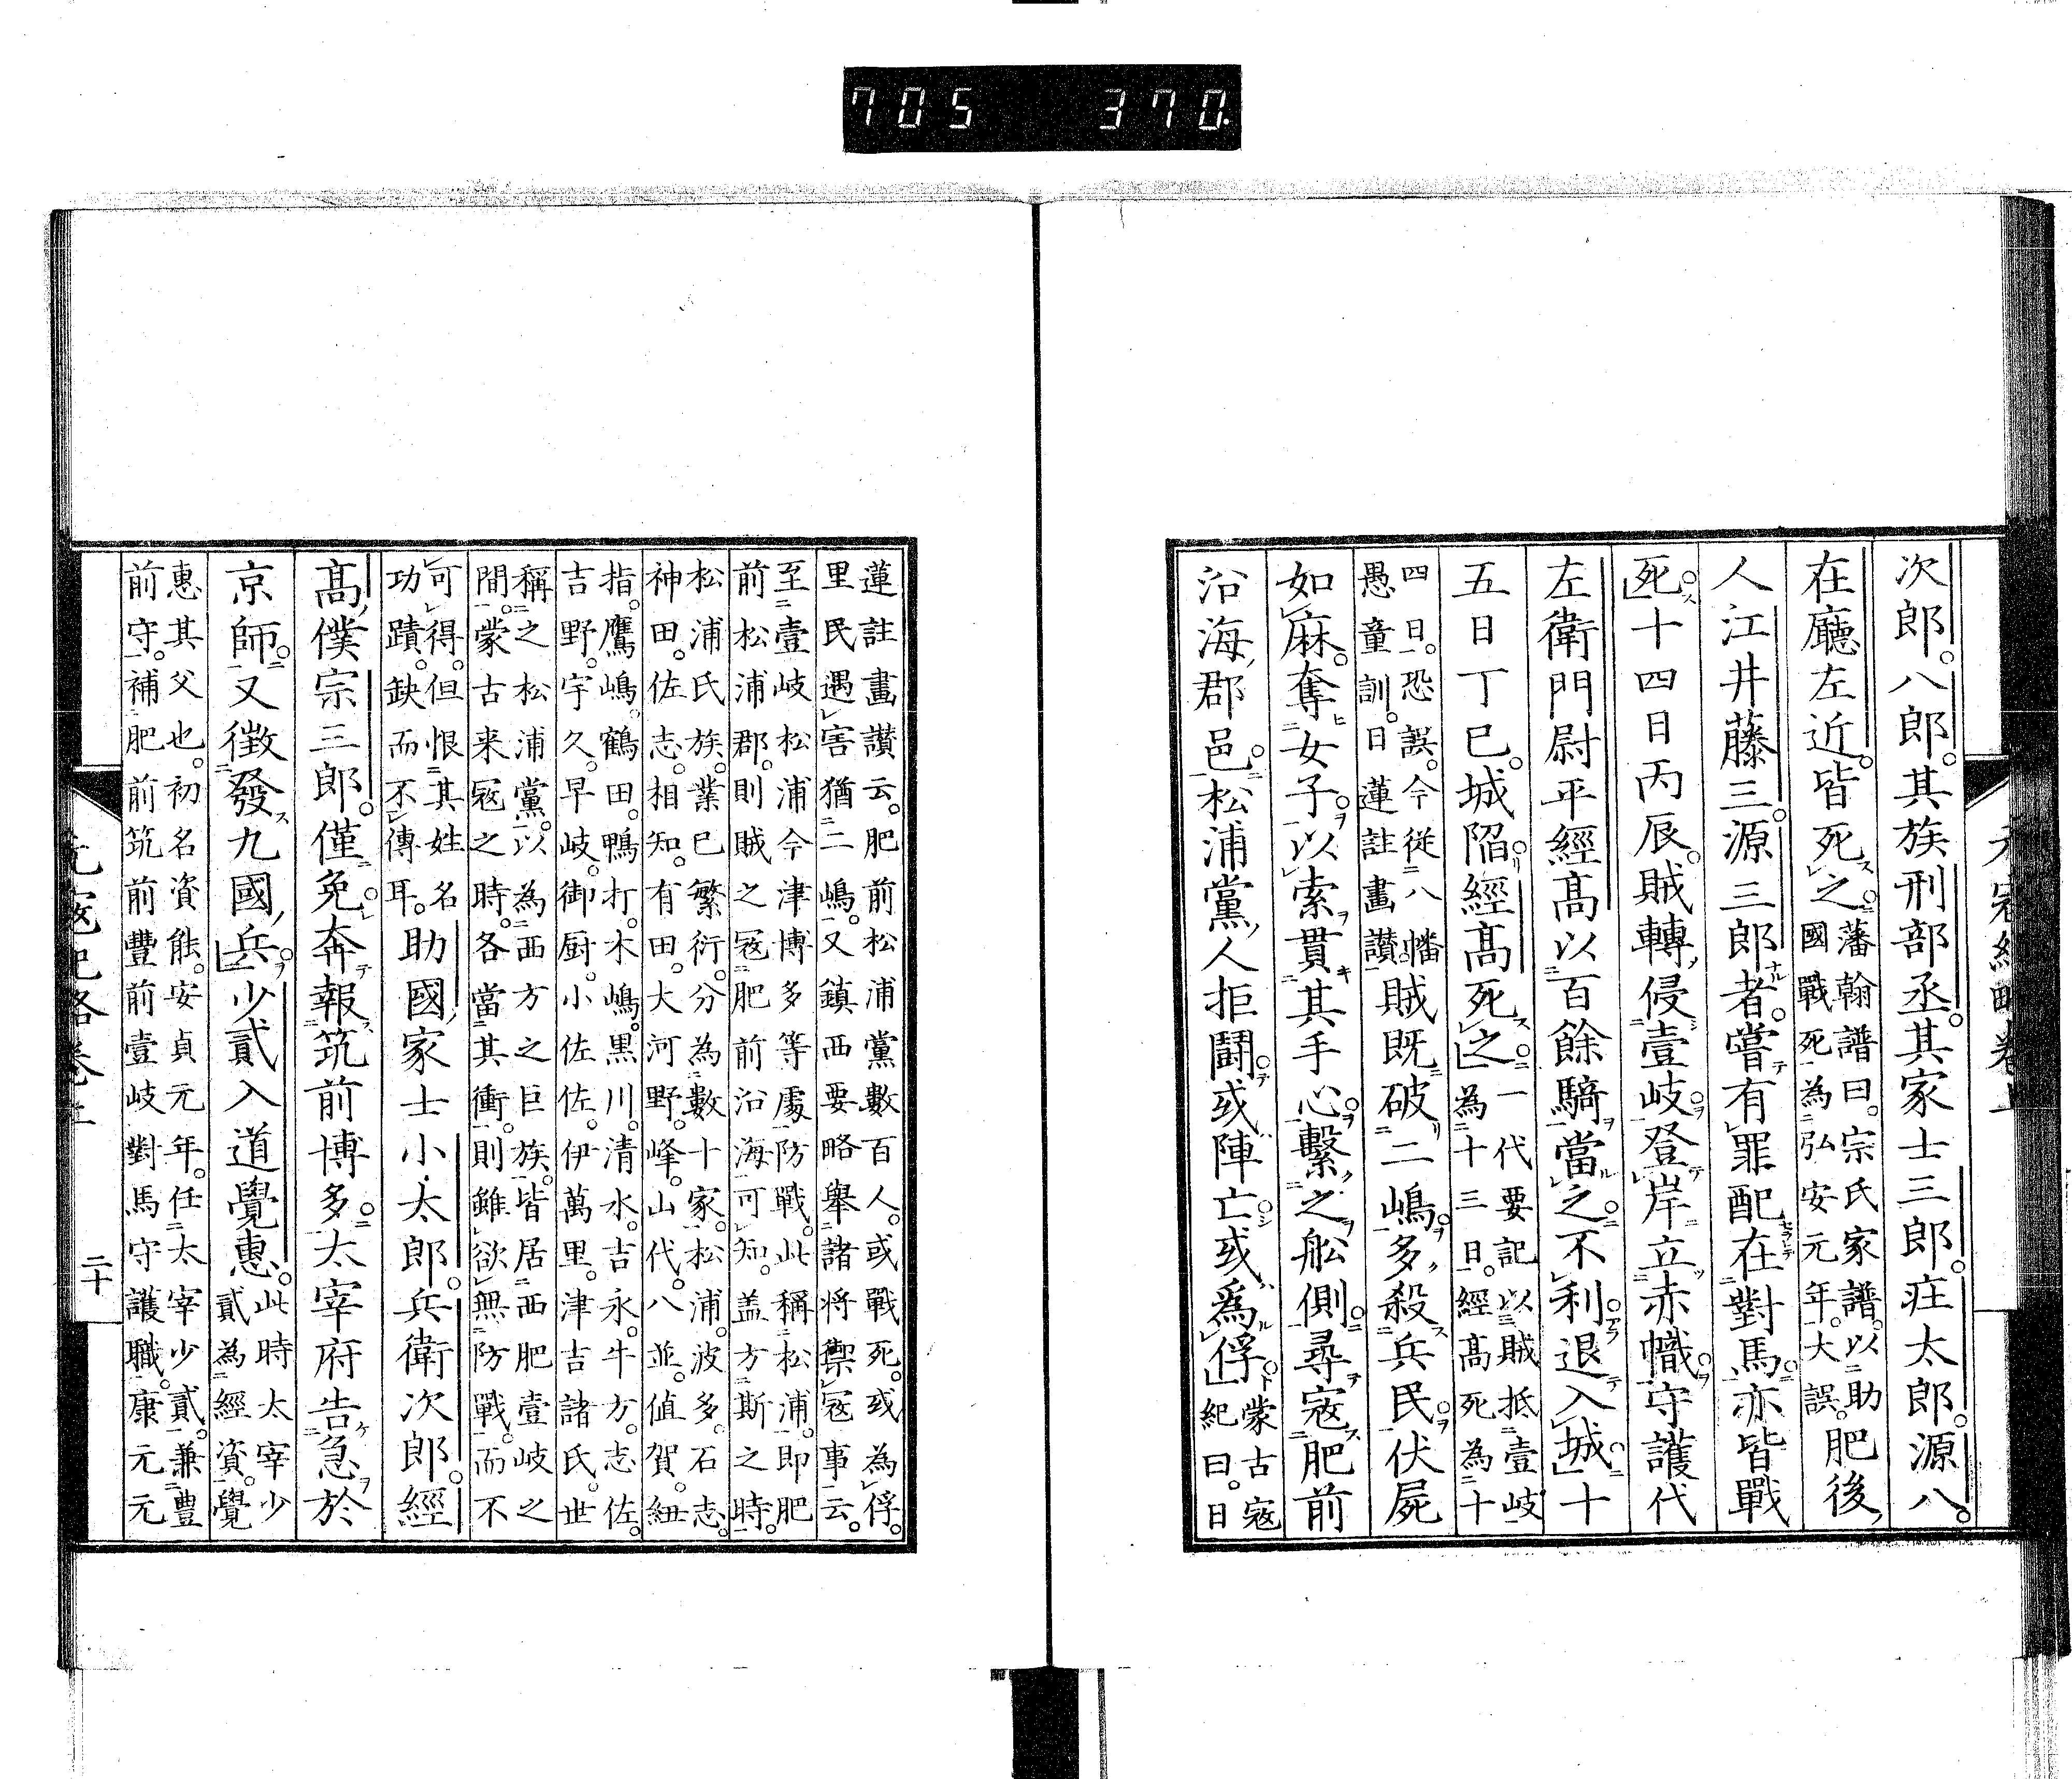 705 370
次郎。八郎。其族刑部丞。其家士三郎。庄太郎。源八。
在廳左近。皆死之。
藩翰譜曰。宗氏家譜。以助
國戰死為弘安元年。大誤。
肥後
人江井藤三。源三郎者。嘗有罪配在對馬。亦皆戰
死。十四日丙辰。賊轉侵壹岐。登岸立赤幟。守護代
左衛門尉平經高以百餘騎當之。不利退入城。十
五日丁巳。城陷。經高死之。
一代要記以賊抵壹岐
為十三日。經高死為十
四日。恐誤。今從八幡
愚童訓。日蓮註畫讃
賊既破二嶋。多殺兵民。伏屍
如麻。奪女子。以索貫其手心。繫之舩側。尋寇肥前
沿海郡邑。松浦黨人拒鬪。或陣亡。或為俘。
蒙古寇
紀曰。日
蓮註畫讃云。肥前松浦黨數百人。或戰死。或為俘。
里民遇害猶二嶋。又鎮西要略舉諸将禦寇事云。
至壹岐松浦今津博多等處防戰。此稱松浦。即肥
前松浦郡。則賊之寇肥前沿海可知。蓋方斯之時。
松浦氏族。業已繁衍。分為數十家。松浦。波多。石志。
神田。佐志。相知。有田。大河野。峰。山代。八並。値賀。紐
指。鷹嶋。鶴田。鴨打。木嶋。黒川。清水。吉永。牛方。志佐。
吉野。宇久。早岐。御厨。小佐佐。伊萬里。津吉諸氏。世
稱之松浦黨。以為西方之巨族。皆居西肥壹岐之
間。蒙古来寇之時。各當其衝。則雖欲無防戰。而不
可得。但恨其姓名
功蹟。缺而不傳耳。
助國家士小太郎。兵衛次郎。經
高僕宗三郎。僅免。奔報筑前博多。太宰府告急於
京師。又徴發九國兵。少貳入道覺惠。
此時太宰少
貳為經資。覺
惠其父也。初名資能。安貞元年。任太宰少貳。兼豐
前守。補肥前筑前豐前壹岐對馬守護職。康元元
二十